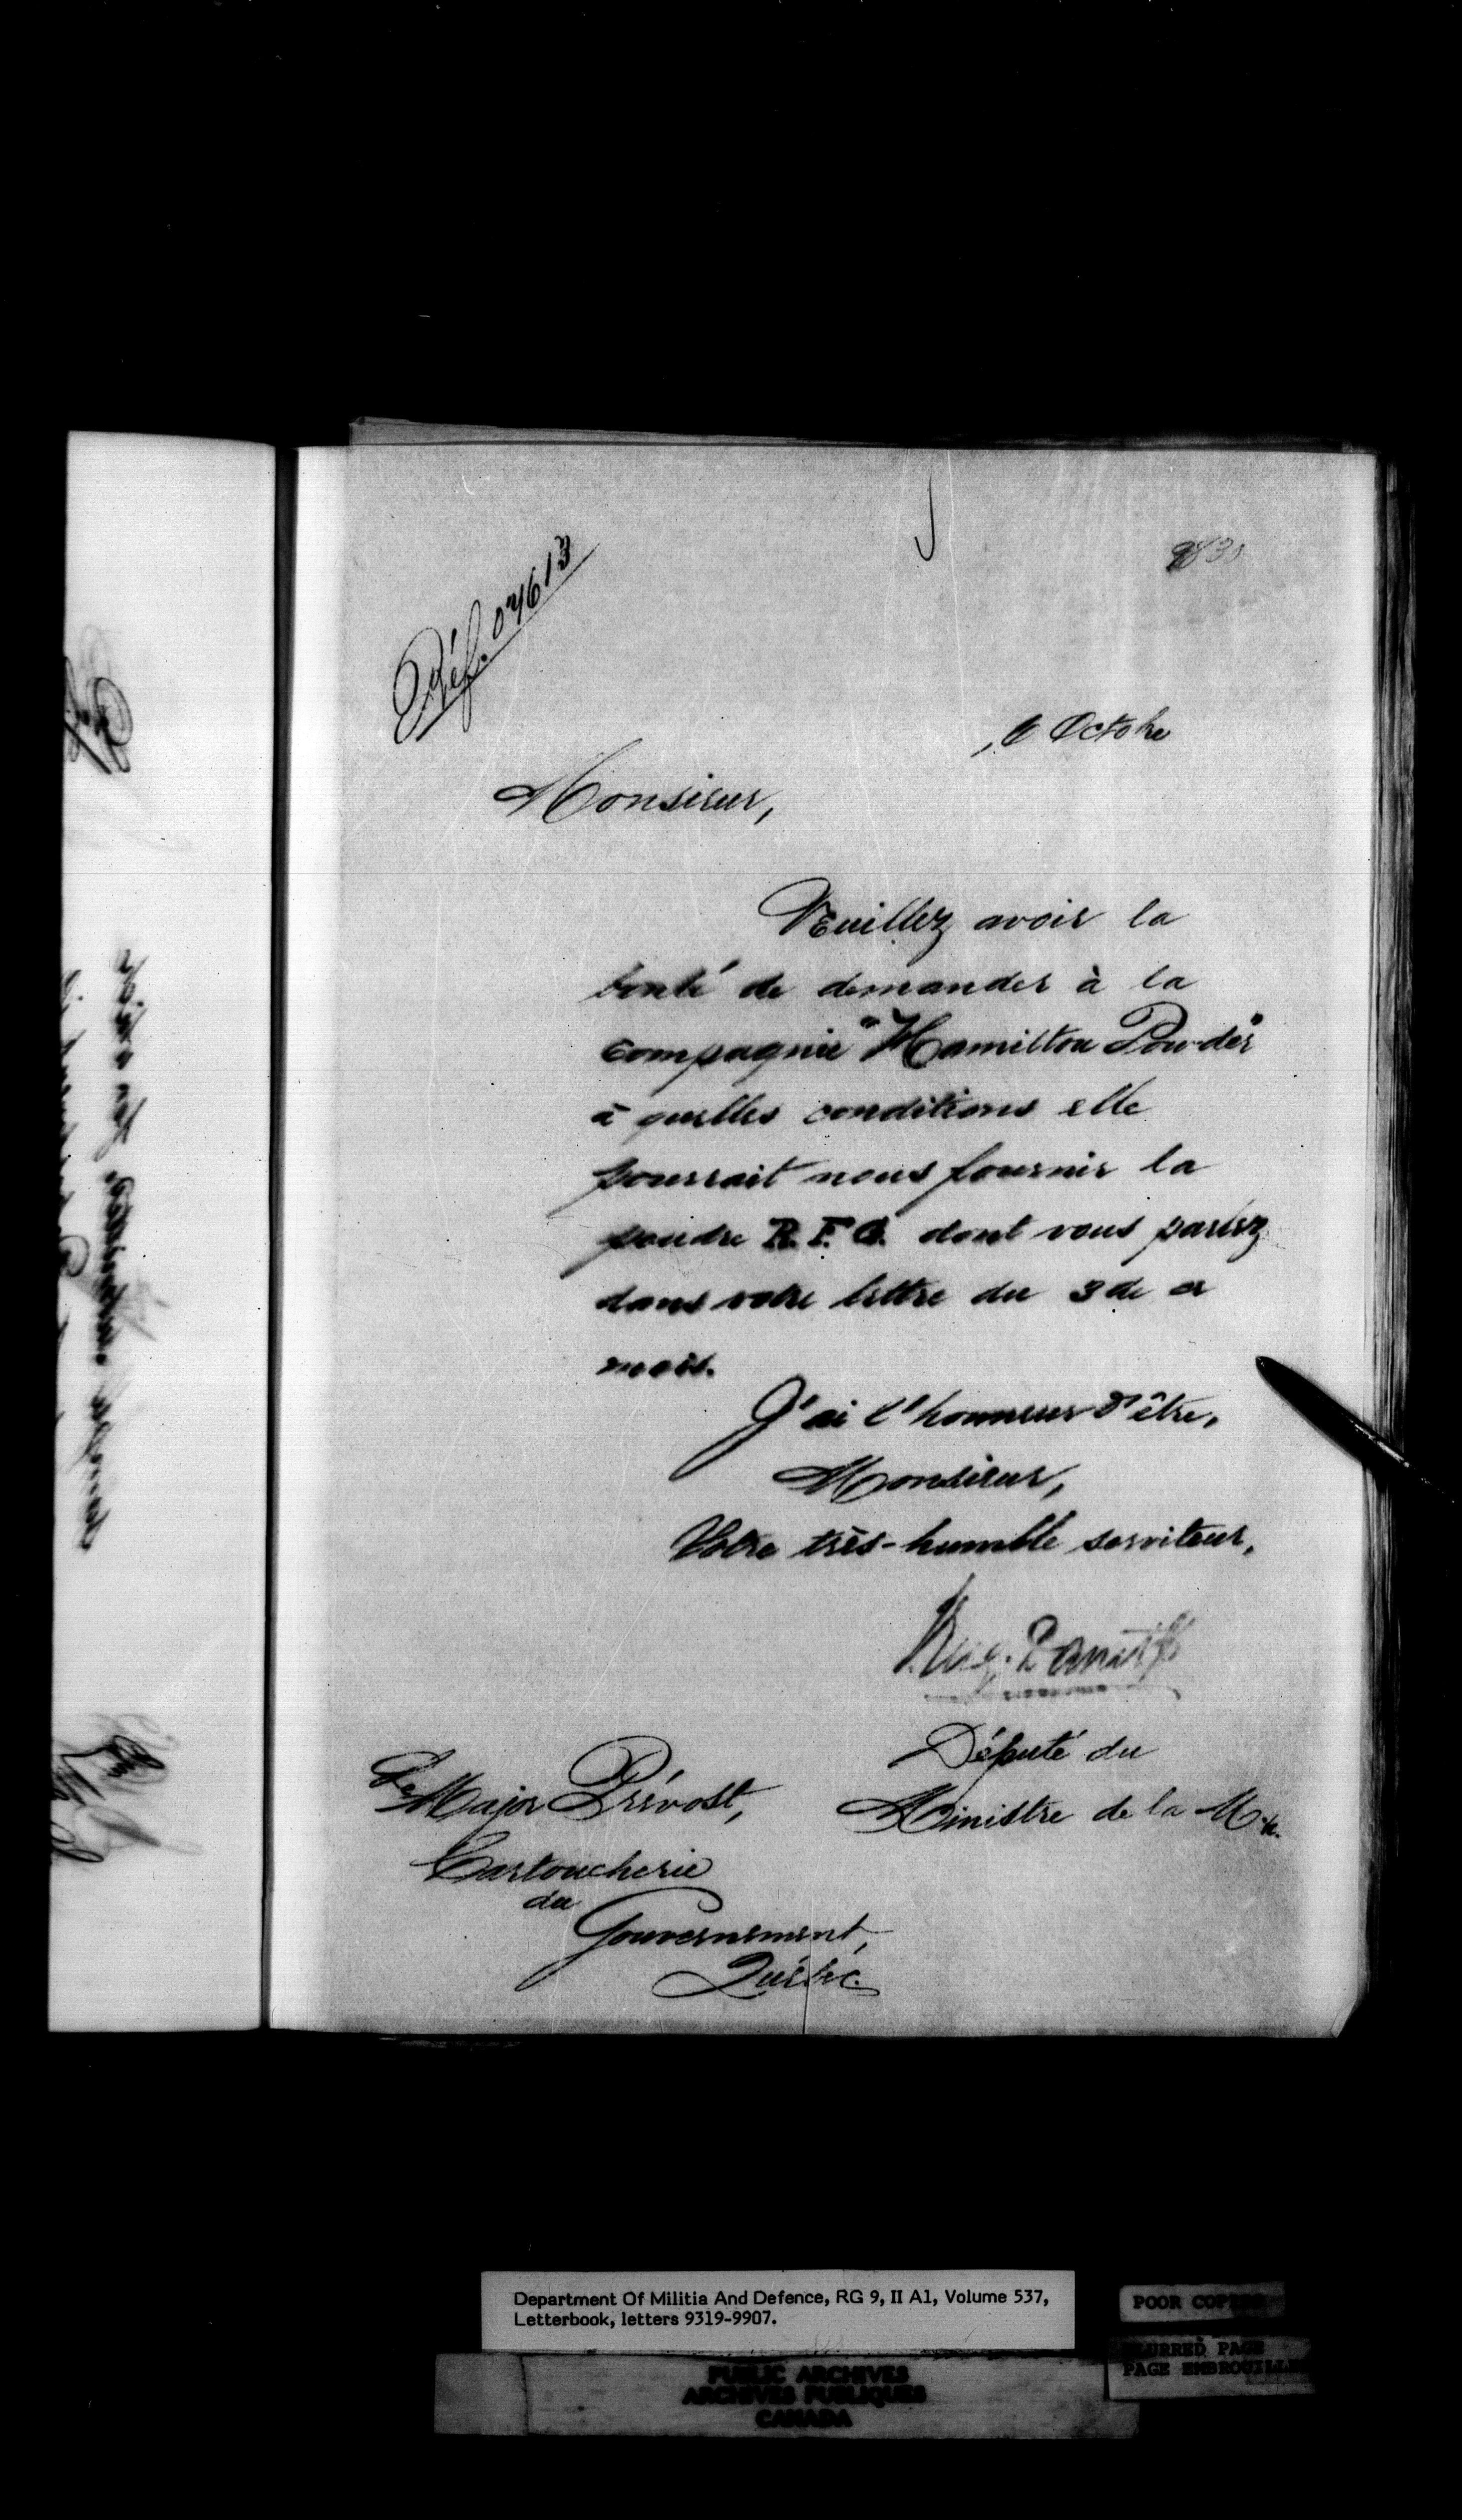 Réf. 04613
6 Octobre
Monsieur,
Veuillez avoir la
bonté de demander à la
compagnie "Hamilton Powder"
à quelles conditions elle
pourrait nous fournir la
poudre R. F. G. dont vous parlez
dans votre lettre du 3 de ce
mois.
J'ai l'honneur d'être,
Monsieur,
Votre très-humble serviteur,
Panet
Député du
Ministre de la M.
Le Major Prévost,
Cartoucherie
du
Gouvernement,
Québec.
Department Of Militia And Defence, RG 9, II A1, Volume 537,
Letterbook, letters 9319-9907.
POOR COPIES
BLURRED PAGE
PAGE EMBROUILLEE
PUBLIC ARCHIVES
ARCHIVES PUBLIQUES
CANADA